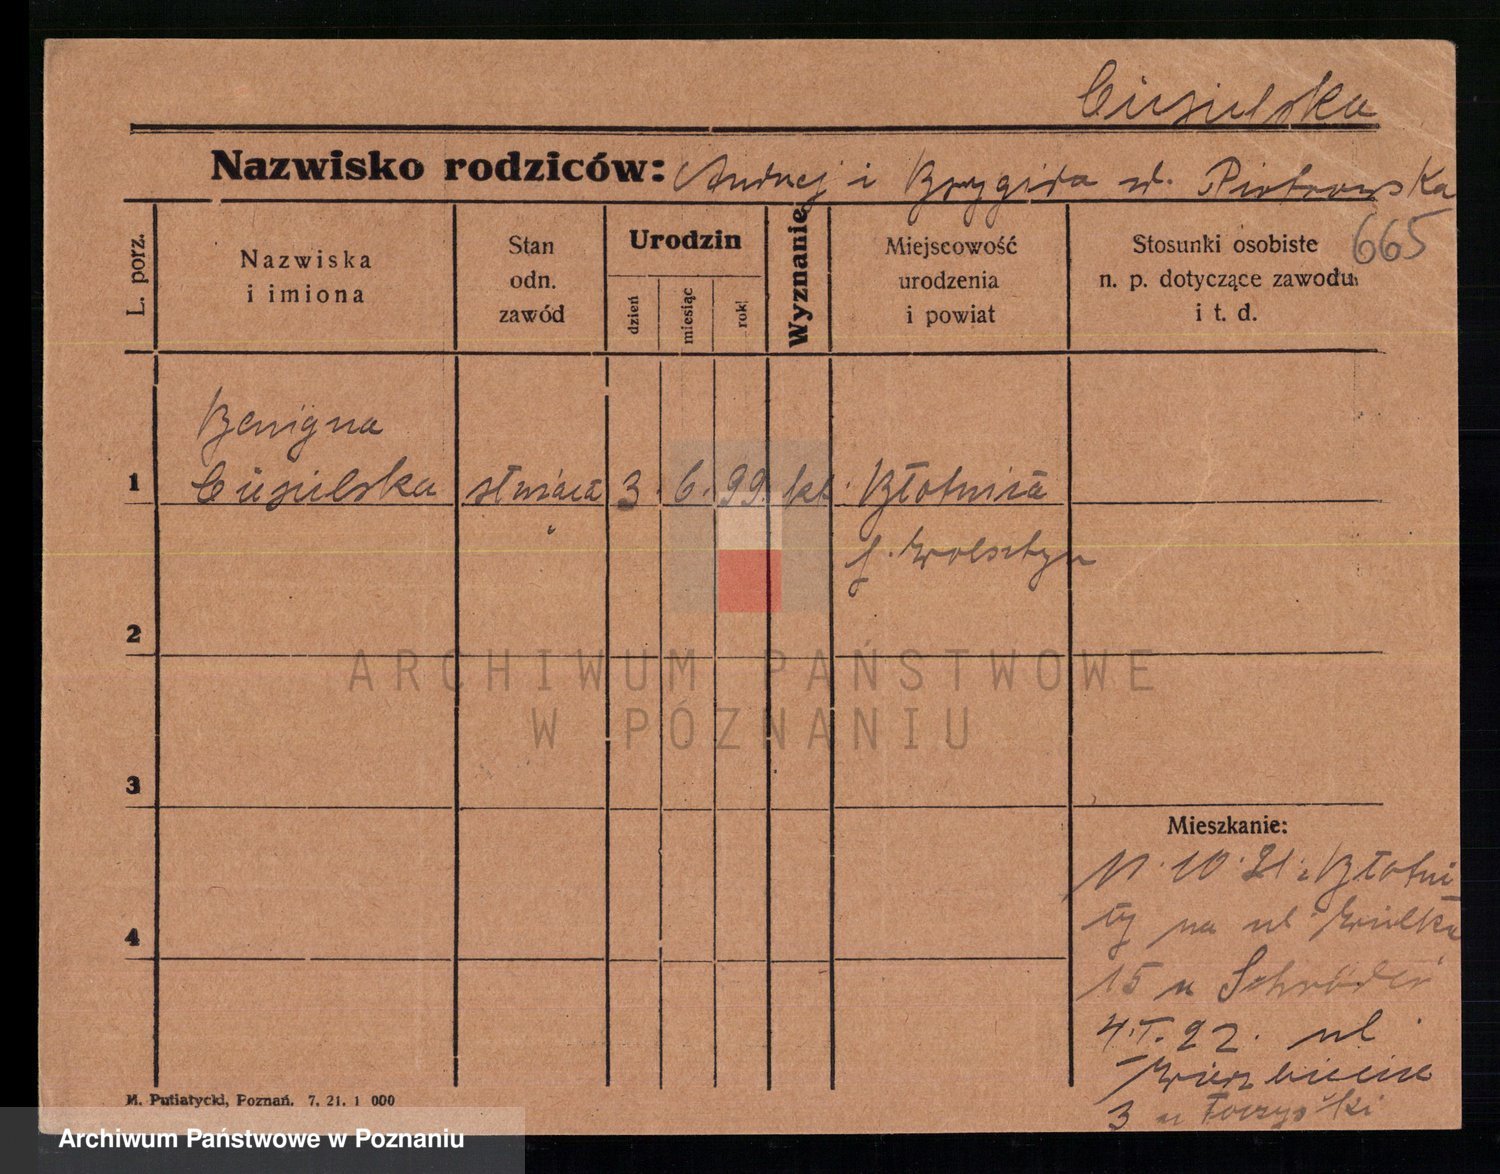 Ciesielska
Nazwisko rodziców: Andrzej i Brygida z d. Piotrowska
665
L. porz.
Nazwiska
i imiona
Stan
odn.
zawód
Urodzin
dzień
miesiąc
rok
Wyznanie
Miejscowość
urodzenia
i powiat
Stosunki osobiste
n. p. dotyczące zawodu
i t. d.
Benigna
1 Ciesielska służąca 3. 6. 99. kt. Błotnica
p. Wolsztyn
2
3
4
Mieszkanie:
11. 10. 21 z Błotni-
cy na ul Wielka
15 u Schröder
4. I. 22. ul
Wierzbięcice
3 u
M. Putiatycki, Poznań. 7. 21. 1 000
ARCHIWUM PAŃSTWOWE
W POZNANIU
Archiwum Państwowe w Poznaniu